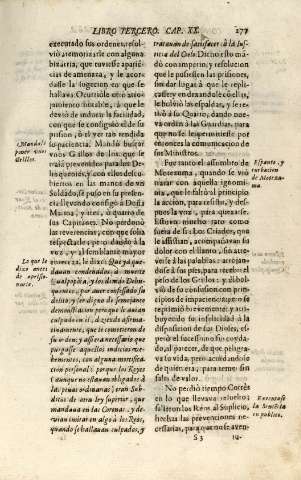 LIBRO TERCERO. CAP. XX. 277
executado sus ordenes, resol-
vió à
biçarria, que tuviesse aparie-
cias de amenaza, y le acor-
dasse la sugecion en que se
hallava. Ocurrióle otro arro-
jamiento notable, à que le
devió de inducir la facilidad,
con que se consiguió el de su
prision, ó el ver tan rendida
su paciencia. Mandó buscar
unos Grillos de los que se
traìan prevenidos para los De-
linquentes, y con ellos descu-
biertos en las manos de vn
Soldado se puso en su presen-
cia, llevando consigo à Doña
Marina, y tres, ò quatro de
sus Capitanes. No perdonó
las reverencias, con que solia
respectarle; pero dando à la
voz, y al semblante mayor
entereza, le dixo: Que yà que-
davan condenados à muerte
Qualpopoca, y los demàs Delin-
quentes, por aver confessado su
delito, y ser digno de semejante
demostracion; pero que le avian
culpado en èl, diziendo afirma-
tivamente, que le cometieron de
su orden; y assi era necessario que
purgasse aquellos indicios vehe-
mentes, con alguna mortificacion
personal: porque los Reyes
(aunque no estavan obligados à
las penas ordinarias) eran Sub-
ditos de otra ley superior, que
mandava en las Coronas: y de-
vian imitar en algo à los Reos,
quando se hallavan culpados, y
Manda
poner unos
Grillos.
Lo que le
dixo antes
tratavan de satisfacer à la Jus-
ticia del Cielo. Dicho esto man-
dó con imperio, y resolucion
que le pusiessen las prisiones,
sin dar lugar à que le repli-
casse; y en dexandole con ellas,
le bolvió las espaldas, y se reti-
ró à su Quarto, dando nue-
va orden à las Guardas, para
que no se le permitiesse por
entonces la comunicacion de
sus Ministros.
Fue tanto el assombro de
Motezuma, quando se vió
tratar con aquella ignomi-
nia, que le faltó al principio
la accion, para resistir, y des-
pues la voz, para quexarse.
Estuvo mucho rato como
fuera de sì: Los Criados, que
le assistian, acompañavan su
dolor con el llanto, sin atre-
verse à las palabras: arrojan-
dose à sus pies, para recibir el
peso de los Grillos: y él bol-
vió de su confusion con prin-
cipios de impaciencia; pero se
reprimió brevemente; y atri-
buyendo su infelicidad à la
disposicion de sus Dioses, es-
peró el sucesso, no sin cuyda-
do, al parecer, de que peligra-
va su vida, pero acordandose
de quien era, para temer sin
falta de valor.
No perdió tiempo Cortès
en lo que llevava resuelto:
salieron los Reos al Suplicio,
hechas las prevenciones ne-
cessarias, para que no se aven-
S 3 tu-
Espanto, y
turbacion
de Motezu-
ma.
Executase
la Sentencia
en publico.